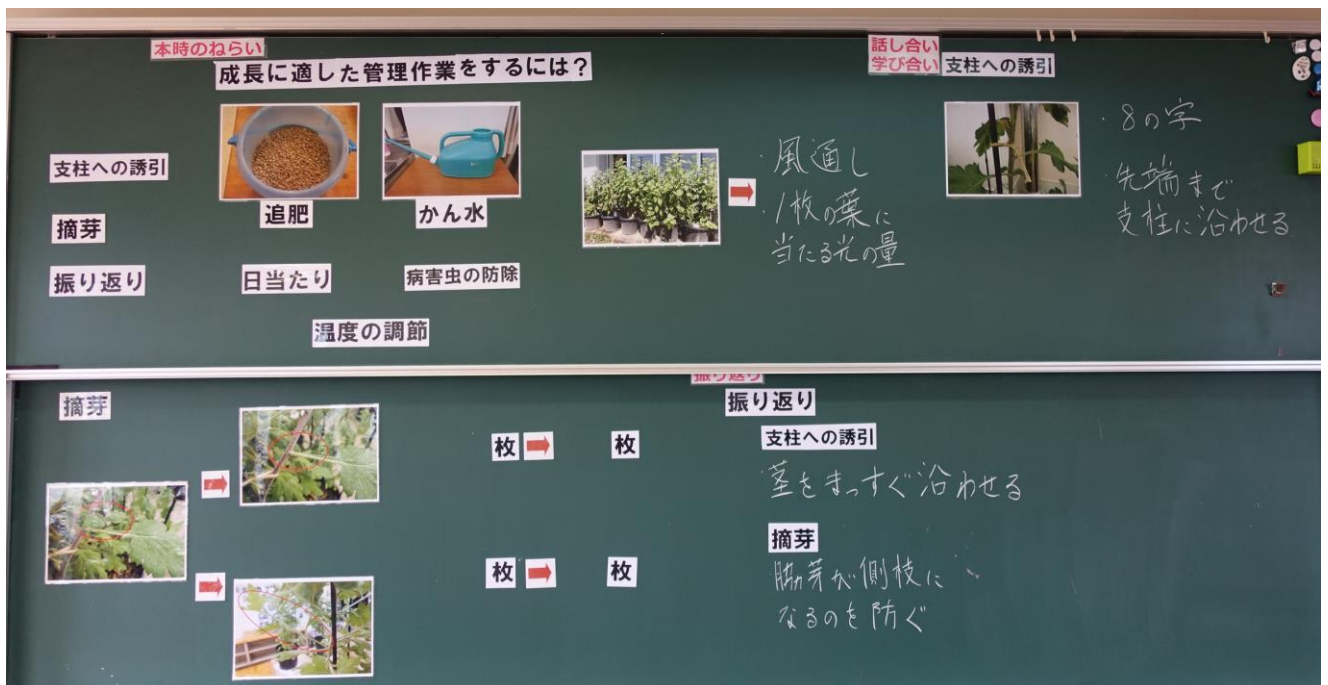 本時のねらい
成長に適した管理作業をするには?
支柱への誘引
摘芽
振り返り
追肥
かん水
日当たり
病害虫の防除
温度の調節
・風通し
・1枚の葉に
当たる光の量
話し合い
学び合い
支柱への誘引
・8の字
・先端まで
支柱に沿わせる
摘芽
枚
枚
枚
枚
振り返り
振り返り
支柱への誘引
・茎をまっすぐ沿わせる
摘芽
脇芽が側枝に
なるのを防ぐ